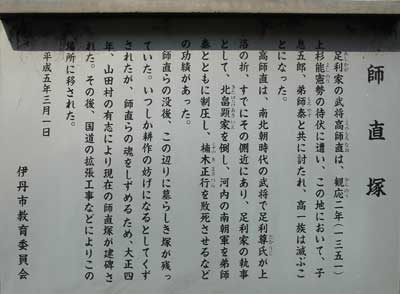 師直塚
足利家の武将高師直は、観応二年(一三五一)
上杉能憲勢の待伏に遭い、この地において、子
息五郎、弟師泰と共に討たれ、高一族は滅ぶこ
とになった。
高師直は、南北朝時代の武将で足利尊氏が上
洛の折、すでにその側近にあり、足利家の執事
として、北畠顕家を倒し、河内の南朝軍を弟師
泰とともに制圧し、楠木正行を敗死させるなど
の功績があった。
師直らの没後、この辺りに墓らしき塚が残っ
ていた。いつしか耕作の妨げになるとしてくず
されたが、師直らの魂をしずめるため、大正四
年、山田村の有志により現在の師直塚が建碑さ
れた。その後、国道の拡張工事などによりこの
場所に移された。
平成五年三月一日
伊丹市教育委員会